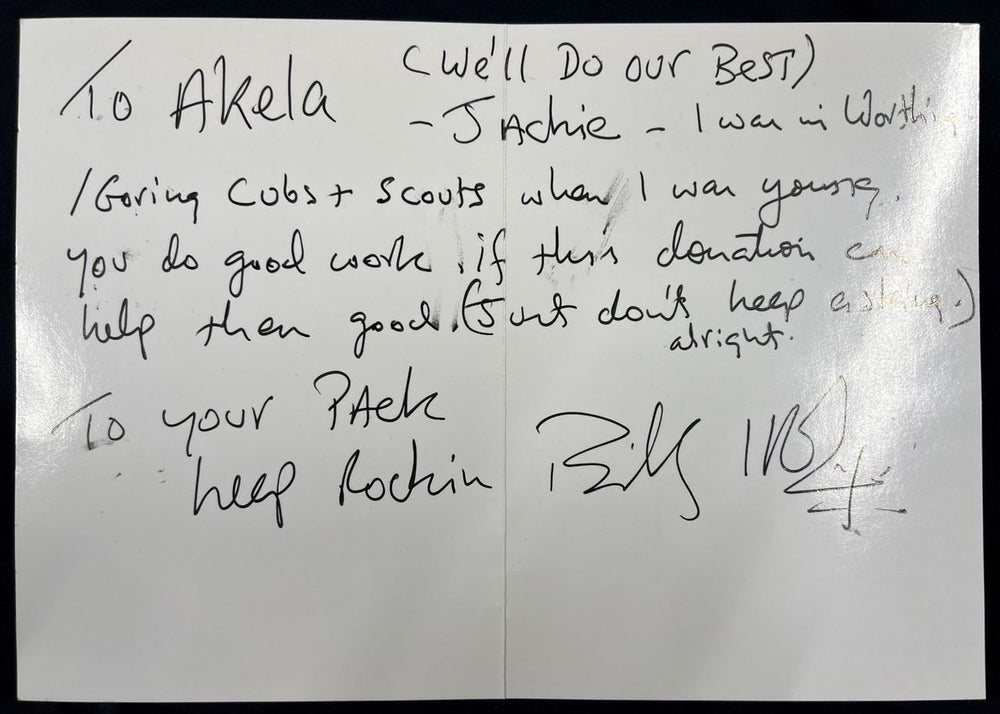 To Akela (We'll Do our Best)
- JAckie - I was in Worthing
/Goring Cubs + Scouts when I was young.
you do good work. if this donation can
help then good. (Just don't keep asking.)
alright.
To your PAck
keep Rockin Billy IDOL